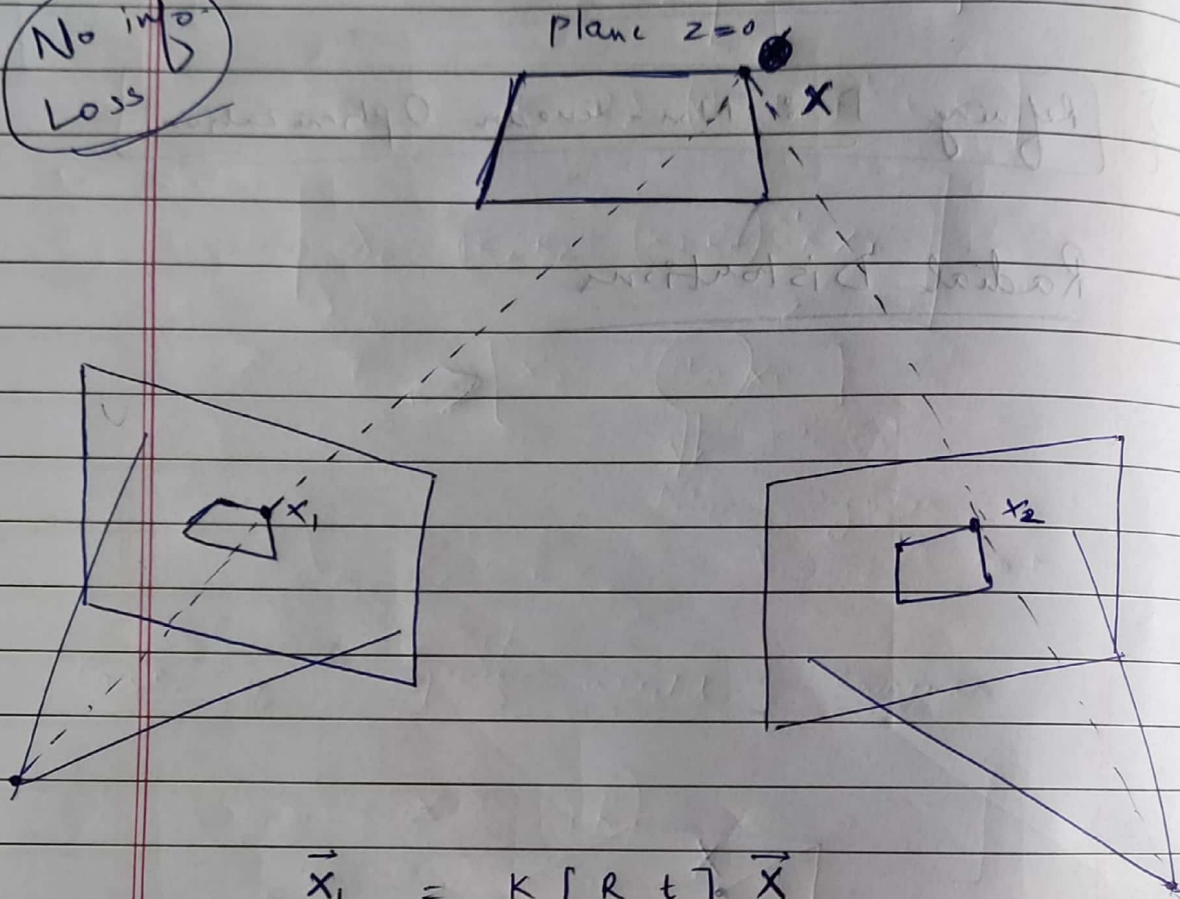 No info
Loss
Plane z=0
X
x₁
x₂
x⃗₁ = K [ R t ] X⃗